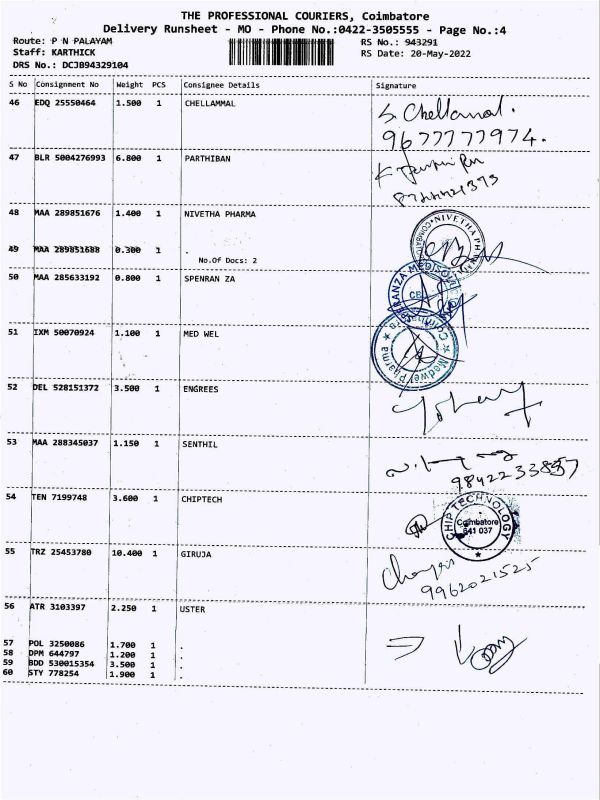 THE PROFESSIONAL COURIERS, Coimbatore
Delivery Runsheet - MO - Phone No.:0422-3505555 - Page No.:4
Route: P N PALAYAM RS No.: 943291
Staff: KARTHICK RS Date: 20-May-2022
DRS No.: DCJB94329104
S No Consignment No Weight PCS Consignee Details Signature
46 EDQ 25550464 1.500 1 CHELLAMMAL
S. Chellamal.
9677777974.
47 BLR 5004276993 6.800 1 PARTHIBAN
48 MAA 289851676 1.400 1 NIVETHA PHARMA
NIVETHA PHARMA
49 MAA 289851688 0.300 1 .
No.Of Docs: 2
50 MAA 285633192 0.800 1 SPENRAN ZA
51 IXM 50070924 1.100 1 MED WEL
Medwel Pharma
52 DEL 528151372 3.500 1 ENGREES
53 MAA 288345037 1.150 1 SENTHIL
54 TEN 7199748 3.600 1 CHIPTECH
CHIP TECHNOLOGY
Coimbatore
641 037
55 TRZ 25453780 10.400 1 GIRUJA
9962021525
56 ATR 3103397 2.250 1 USTER
57 POL 3250086 1.700 1 .
58 DPM 644797 1.200 1 .
59 BDD 530015354 3.500 1 .
60 STY 778254 1.900 1 .